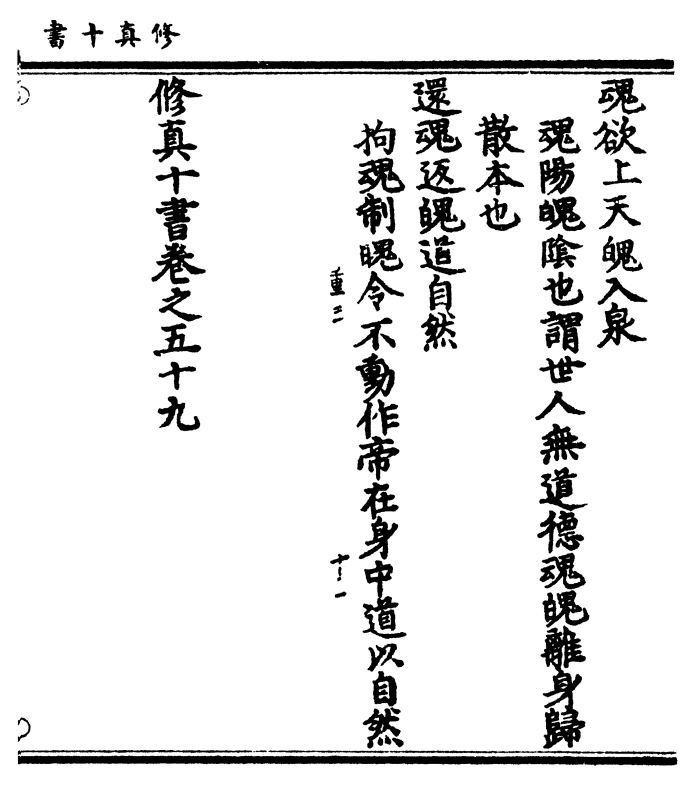 修真十書
魂欲上天魄入泉
魂陽魄陰也謂世人無道德魂魄離身歸
散本也
還魂返魄道自然
拘魂制魄令不動作帝在身中道以自然
重三
十一
修真十書卷之五十九